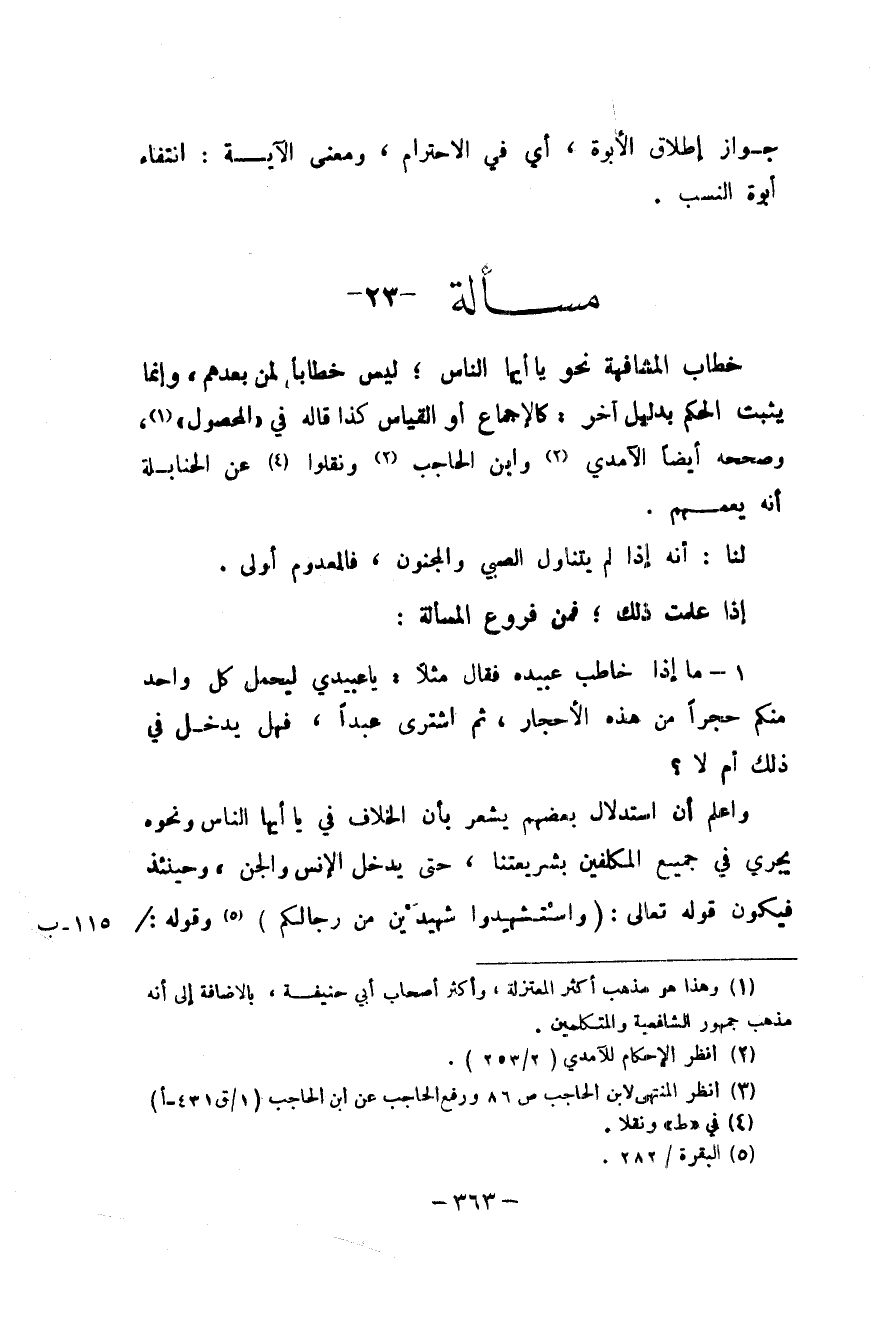 جـواز إطلاق الأبوة ، أي في الاحترام ، ومعنى الآيـــة : انتفاء
أبوة النسب .
مســـألة -٢٣-
خطاب المشافهة نحو يا أيها الناس ؛ ليس خطاباً لمن بعدهم ، وإنما
يثبت الحكم بدليل آخر : كالإجماع أو القياس كذا قاله في «المحصول»(١)،
وصححه أيضاً الآمدي (٢) وابن الحاجب (٣) ونقلوا (٤) عن الحنابـلة
أنه يعمـــهم .
لنا : أنه إذا لم يتناول الصبي والمجنون ، فالمعدوم أولى .
إذا علمت ذلك ؛ فمن فروع المسألة :
١ – ما إذا خاطب عبيده فقال مثلاً : ياعبيدي ليحمل كل واحد
منكم حجراً من هذه الأحجار ، ثم اشترى عبداً ، فهل يدخـل في
ذلك أم لا ؟
واعلم أن استدلال بعضهم يشعر بأن الخلاف في يا أيها الناس ونحوه
يجري في جميع المكلفين بشريعتنا ، حتى يدخل الإنس والجن ، وحينئذ
فيكون قوله تعالى : ( واسْتشهِدوا شهيدَيْن من رجالكم ) (٥) وقوله :/ ١١٥-ب
(١) وهذا هو مذهب أكثر المعتزلة ، وأكثر أصحاب أبي حنيفـــة ، بالاضافة إلى أنه
مذهب جمهور الشافعية والمتكلمين .
(٢) انظر الإحكام للآمدي ( ٢٥٣/٢ ) .
(٣) انظر المنتهى لابن الحاجب ص ٨٦ ورفع الحاجب عن ابن الحاجب (١/ق٤٣١-أ)
(٤) في «ط» ونقلا .
(٥) البقرة / ٢٨٢ .
– ٣٦٣ –